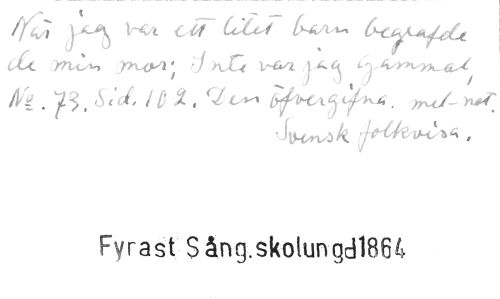 När jag var ett litet barn begrafde
de min mor; Inte var jag gammal,
No. 73. Sid. 102. Den öfvergifna. mel-not.
Svensk folkvisa.
Fyrast Sång.skolungd1864